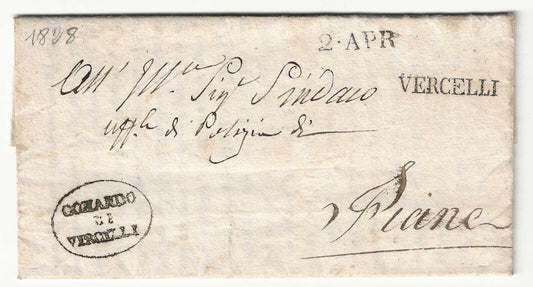 1828
2·APR
VERCELLI
All' Ill.mo Sig.r Sindaco
uff.le di Polizia di
Piane
COMANDO
DI
VERCELLI